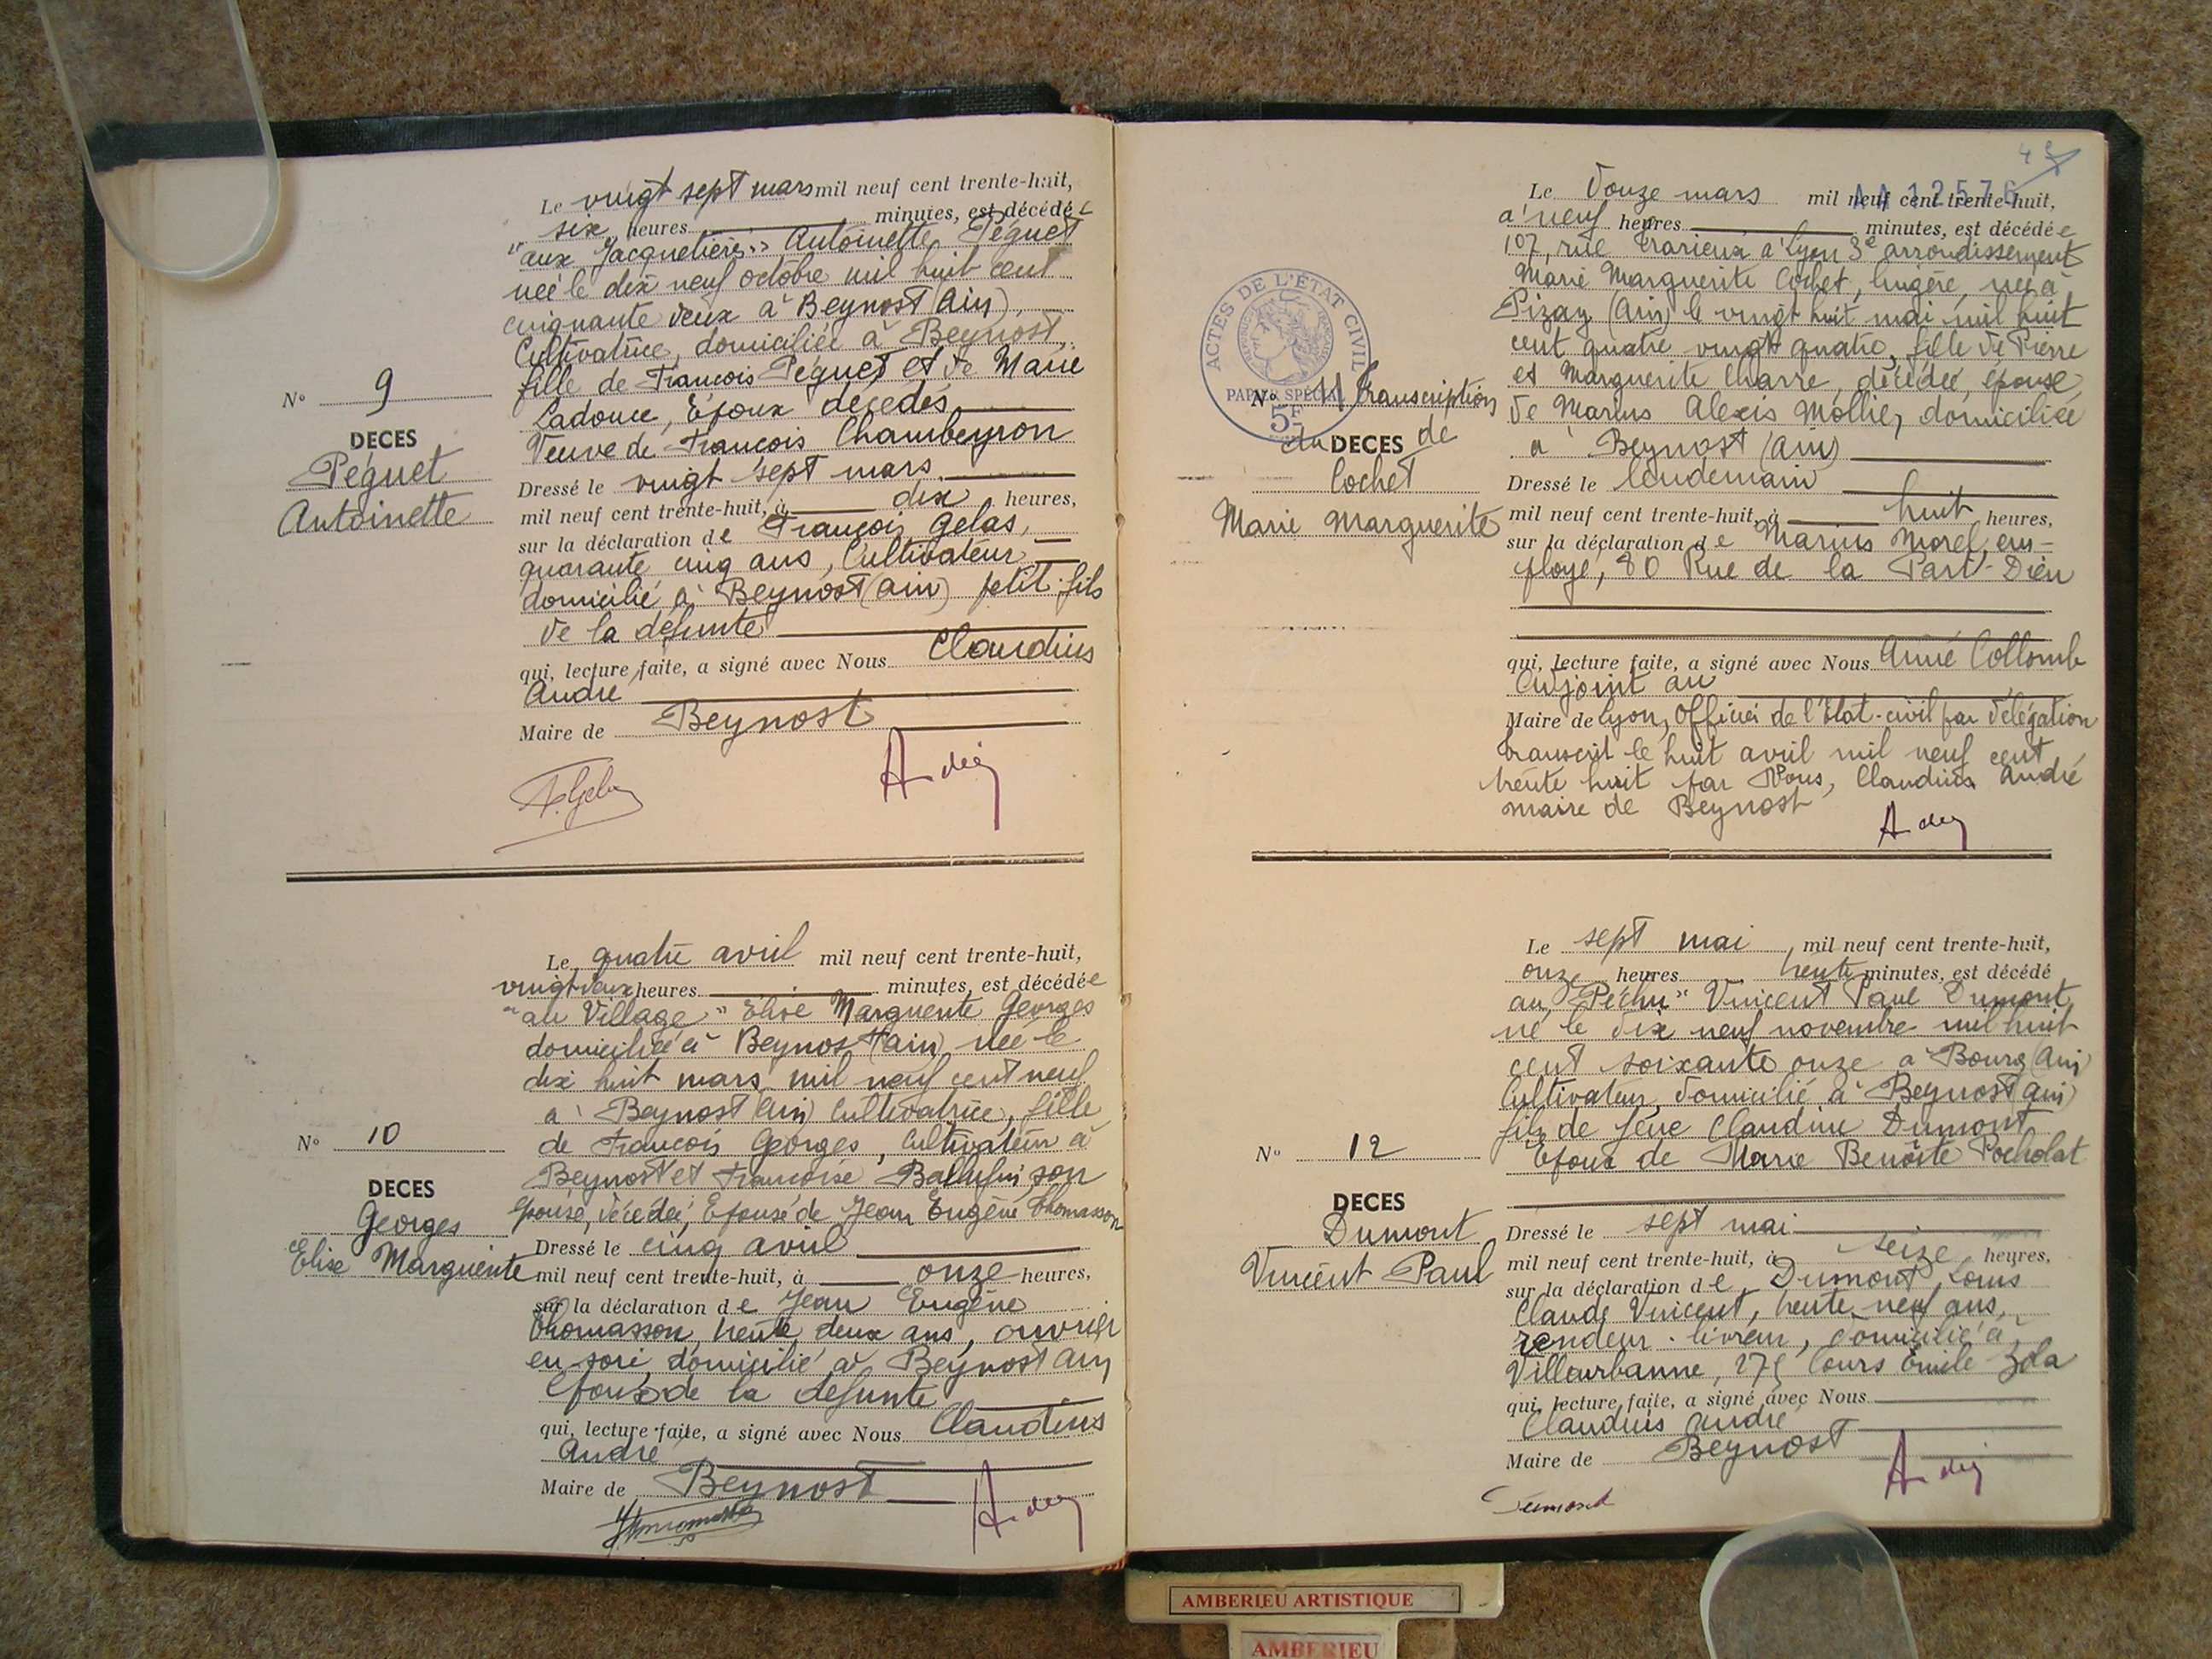 Le vingt sept mars mil neuf cent trente-huit,
six heures minutes, est décédée
"aux Jacquetières" Antoinette Péguet
née le dix neuf octobre mil huit cent
cinquante deux à Beynost (Ain),
Cultivatrice, domiciliée à Beynost,
fille de François Péguet et de Marie
Ladouce, Epoux décédés
Veuve de François Chambeyron
N° 9
DECES
Péguet
Antoinette
Dressé le vingt sept mars
mil neuf cent trente-huit, à dix heures,
sur la déclaration de François Gelas,
quarante cinq ans, Cultivateur
domicilié à Beynost (Ain) petit-fils
de la défunte
qui, lecture faite, a signé avec Nous Claudius
André
Maire de Beynost
Le quatre avril mil neuf cent trente-huit,
vingt deux heures minutes, est décédée
"au Village" Elise Marguerite Georges
domiciliée à Beynost (Ain) née le
dix huit mars mil neuf cent neuf
à Beynost (Ain) Cultivatrice, fille
de François Georges, Cultivateur à
Beynost et Françoise son
épouse, décédée, Epouse de Jean Eugène Thomasson
N° 10
DECES
Georges
Elise Marguerite
Dressé le cinq avril
mil neuf cent trente-huit, à onze heures,
sur la déclaration de Jean Eugène
Thomasson, trente deux ans, ouvrier
en soie, domicilié à Beynost Ain
Epoux de la défunte
qui, lecture faite, a signé avec Nous Claudius
André
Maire de Beynost
Le Douze mars mil neuf cent trente-huit,
à neuf heures minutes, est décédée
107, rue Trarieux à Lyon 3e arrondissement
Marie Marguerite Cochet, lingère, née à
Pizay (Ain) le vingt huit mai mil huit
cent quatre vingt quatre, fille de Pierre
et Marguerite Charre, décédée, épouse
de Marius Alexis Mollier, domiciliée
à Beynost (Ain)
ACTES DE L'ÉTAT CIVIL
PAPIER SPÉCIAL
5F
N° 11 Transcription
du DECES de
Cochet
Marie Marguerite
Dressé le lendemain
mil neuf cent trente-huit, à huit heures,
sur la déclaration de Marius Morel, em-
ployé, 80 Rue de la Part-Dieu
qui, lecture faite, a signé avec Nous Aimé Collomb
Adjoint au
Maire de Lyon, Officier de l'Etat-civil par délégation
transcrit le huit avril mil neuf cent
trente huit par Nous, Claudius André
maire de Beynost
Le sept mai mil neuf cent trente-huit,
onze heures trente minutes, est décédé
au "Péchu" Vincent Paul Dumont
né le dix neuf novembre mil huit
cent soixante onze à Bourg (Ain)
Cultivateur, domicilié à Beynost (Ain)
fils de feue Claudine Dumont
Epoux de Marie Benoîte Pocholat
N° 12
DECES
Dumont
Vincent Paul
Dressé le sept mai
mil neuf cent trente-huit, à seize heures,
sur la déclaration de Dumont Louis
Claude Vincent, trente neuf ans,
vendeur-livreur, domicilié à
Villeurbanne, 275 Cours Emile Zola
qui, lecture faite, a signé avec Nous
Claudius André
Maire de Beynost
Dumont
AMBERIEU ARTISTIQUE
AMBERIEU